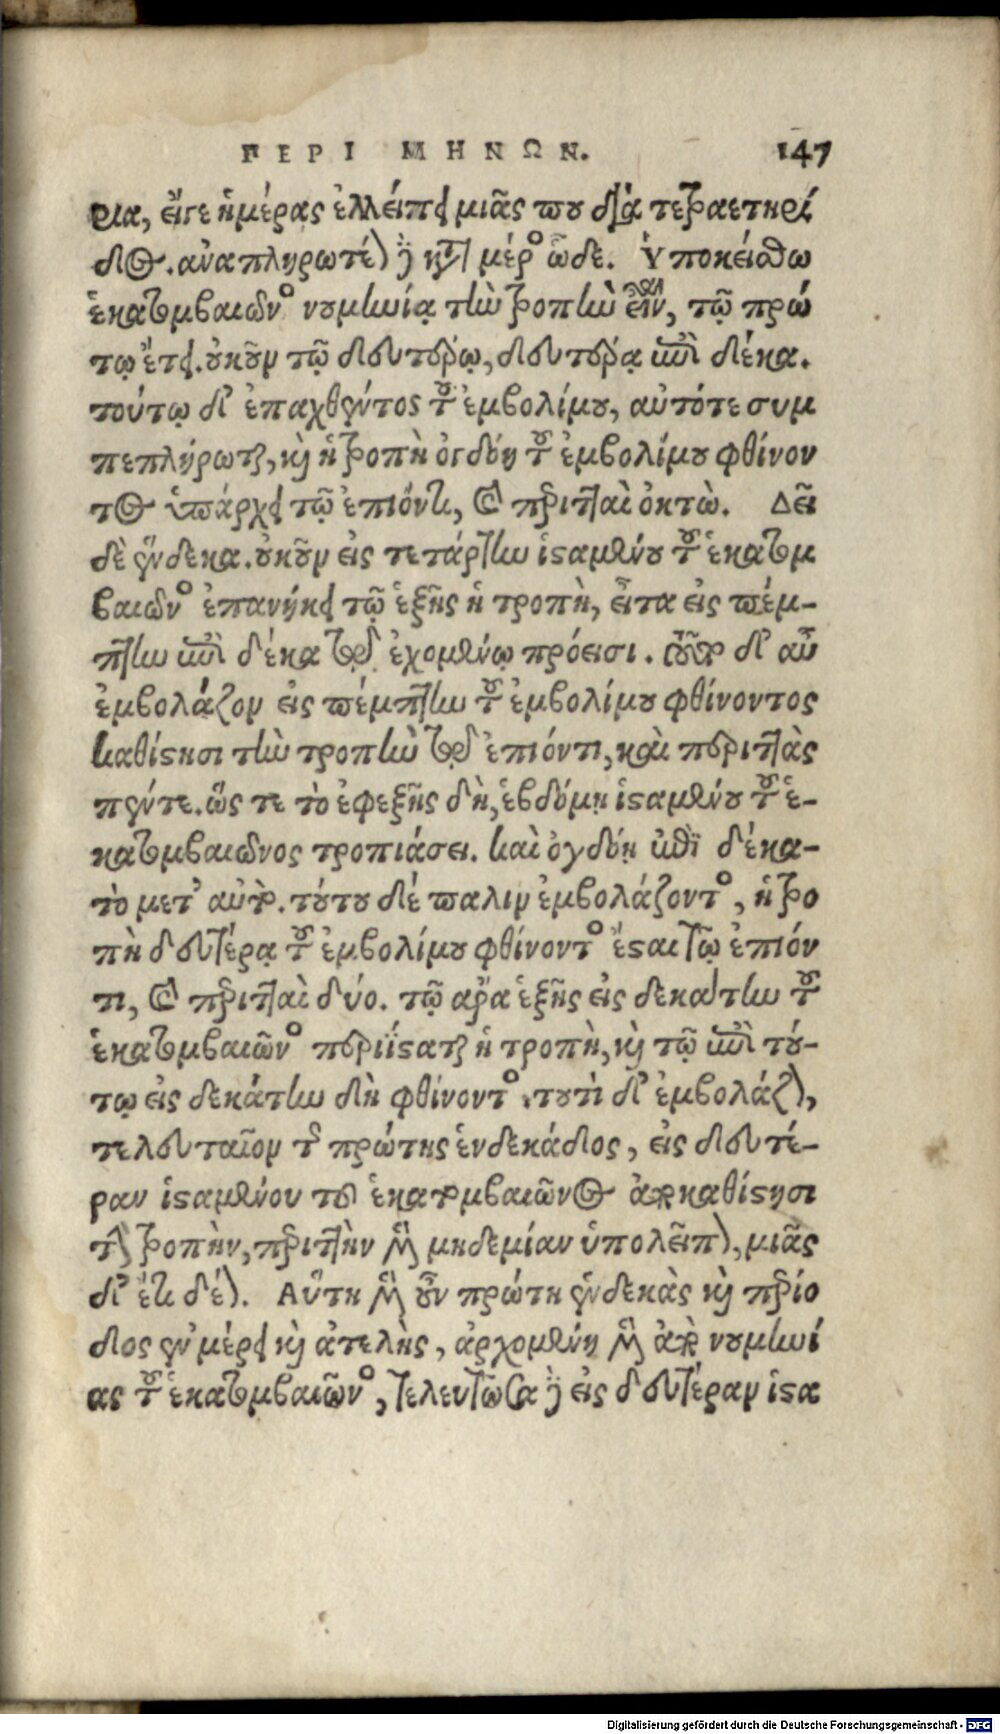 ΠΕΡΙ ΜΗΝΩΝ. 147
ρια, εἴγε ἡμέρας ἐλλείπει μιᾶς που διὰ τετραετηρί
δος. ἀναπληρωτέον δὲ κατὰ μέρος ὧδε. Ὑποκείσθω
ἑκατομβαιῶνος νουμηνίᾳ τὴν τροπὴν εἶναι, τῷ πρώ
τῳ ἔτει. οὐκοῦν τῷ δευτέρῳ, δευτέρᾳ ἐπὶ δέκα.
τούτῳ δ' ἐπαχθέντος τοῦ ἐμβολίμου, αὐτό τε συμ
πεπλήρωται, καὶ ἡ τροπὴ ὀγδόη τοῦ ἐμβολίμου φθίνον
τος ὑπάρχει τῷ ἐπιόντι, καὶ περιτταὶ ὀκτώ. Δεῖ
δὲ ἕνδεκα. οὐκοῦν εἰς τετάρτην ἱσαμένου τοῦ ἑκατομ
βαιῶνος ἐπανήκει τῷ ἑξῆς ἡ τροπὴ, εἶτα εἰς πέμ-
πτην ἐπὶ δέκα τῷ ἐχομένῳ πρόεισι. τοῦτο δ' αὖ
ἐμβολάζον εἰς πέμπτην τοῦ ἐμβολίμου φθίνοντος
καθίστησι τὴν τροπὴν τῷ ἐπιόντι, καὶ περιττὰς
πέντε. ὥς τε τὸ ἐφεξῆς δὴ, ἑβδόμῃ ἱσαμένου τοῦ ἑ-
κατομβαιῶνος τροπιάσει. καὶ ὀγδόῃ μετὰ δέκα-
τὸ μετ' αὐτό. τούτου δὲ πάλιν ἐμβολάζοντος, ἡ τρο
πὴ δευτέρᾳ τοῦ ἐμβολίμου φθίνοντος ἔσαι τῷ ἐπιόν
τι, καὶ περιτταὶ δύο. τῷ ἄρα ἑξῆς εἰς δεκάτην τοῦ
ἑκατομβαιῶνος περιίσαται ἡ τροπὴ, καὶ τῷ ἐπὶ τού-
τῳ εἰς δεκάτην δὴ φθίνοντος. τουτὶ δ' ἐμβολάζον,
τελευταῖον τῆς πρώτης ἑνδεκάδος, εἰς δευτέ-
ραν ἱσαμένου τοῦ ἑκατομβαιῶνος ἀποκαθίστησι
τὴν τροπὴν, περιττὴν μὲν μηδεμίαν ὑπολεῖπον, μιᾶς
δ' ἔτι δέον. Αὕτη μὲν οὖν πρώτη ἑνδεκὰς καὶ περίο
δος ἐν μέρει καὶ ἀτελὴς, ἀρχομένη μὲν ἀπὸ νουμηνί
ας τοῦ ἑκατομβαιῶνος, τελευτῶσα δὲ εἰς δευτέραν ἱσα
Digitalisierung gefördert durch die Deutsche Forschungsgemeinschaft - DFG